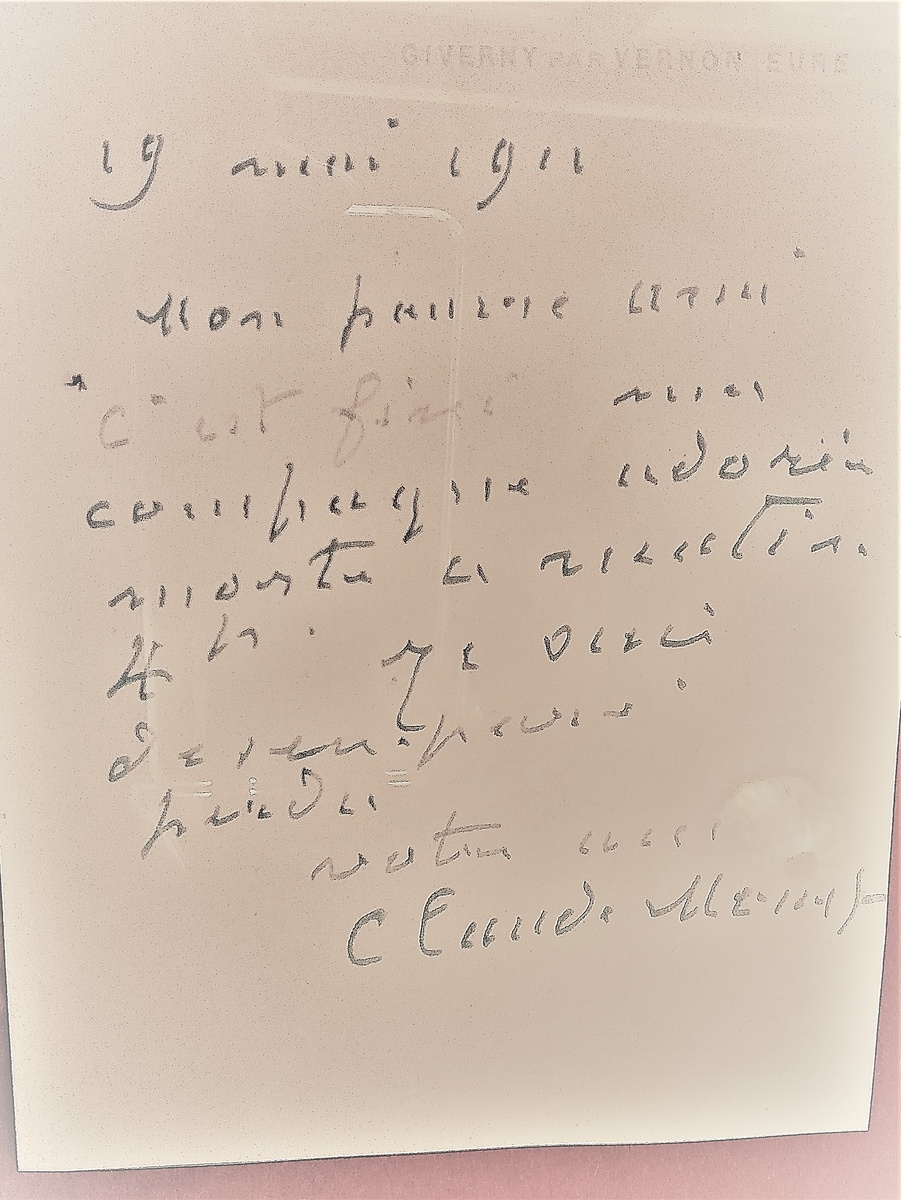 GIVERNY PAR VERNON EURE
19 mai 1911
Mon pauvre ami
C'est fini ma
compagne adorée
morte ce matin.
4 h. Je suis
désemparé
perdu
votre ami
Claude Monet